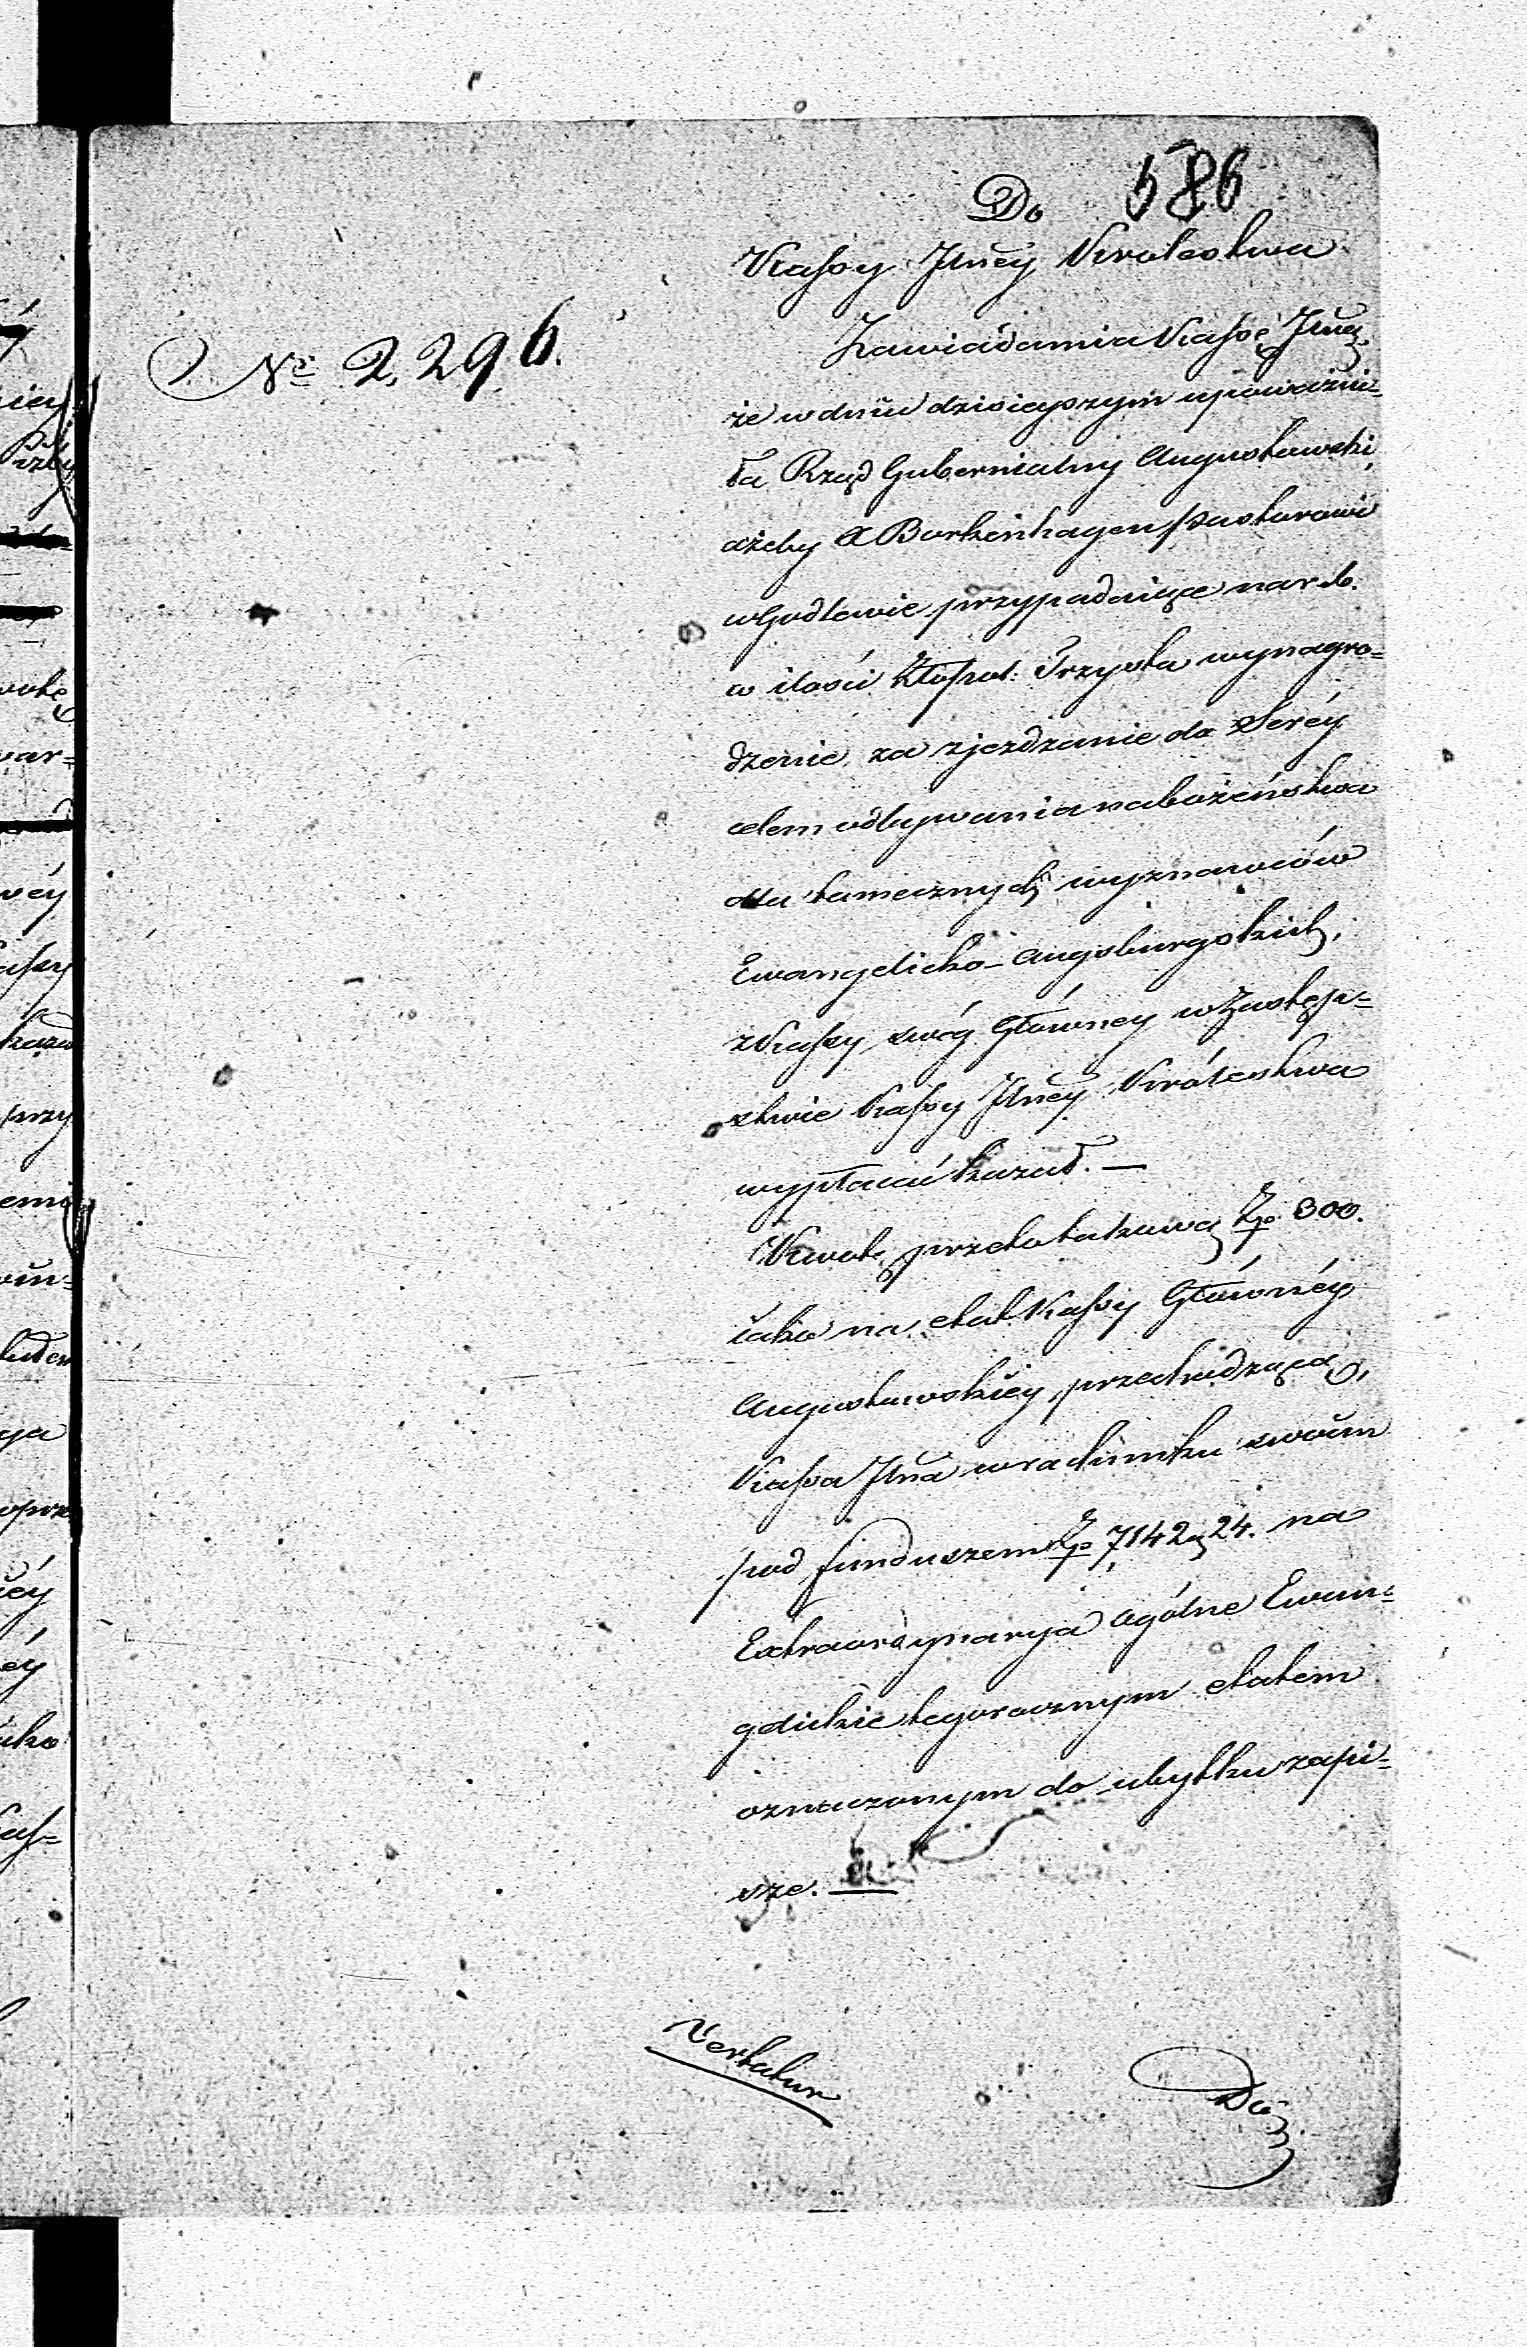 586
Do
Kassy Jłnéy Królestwa
№ 2,296.
Zawiadamia Kassę Jłną
że w dniu dzisieyszym upoważni-
ła Rząd Gubernialny Augustowski,
ażeby X Borkenhagen Pastorowi
w Godlewie przypadaiące na r. b.
w ilości Złopol: Trzysta wynagro-
dzenie za zjeżdzanie do Seréy
celem odbywania nabożeństwa
dla tamecznych wyznawców
Ewangelicko-Augsburgskich,
z Kassy swéy Głównéy w Zastęp-
stwie Kassy Jłnéy Królestwa
wypłacać kazał. —
Kwotę przeto takową Zp 300.
iako na etat Kassy Głównéy
Augustowskiéy przechodzącą,
Kassa Jłna w rachunku swoim
pod funduszem Zp 7,142 g 24. na
Extraordynarya ogólne Ewan-
gelickie tegorocznym etatem
oznaczonym do ubytku zapi-
sze. —
Vertatur